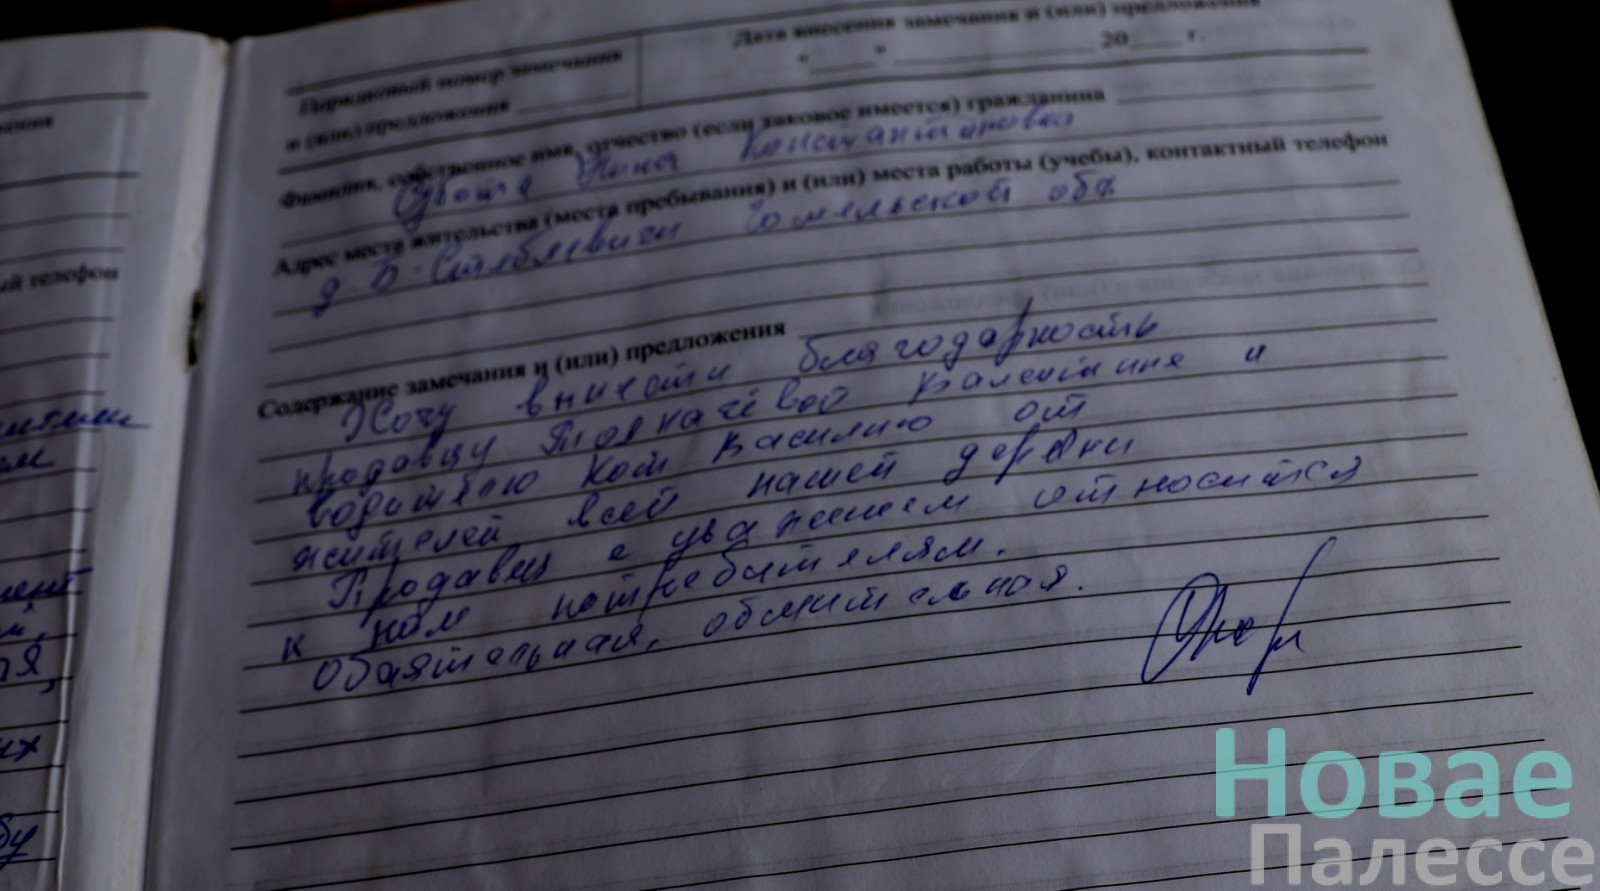 ный телефон
мент
их
бу
Порядковый номер замечания
и (или) предложения
Дата внесения замечания и (или) предложения
"____" ____________ 20____ г.
Фамилия, собственное имя, отчество (если таковое имеется) гражданина
Нина Константиновна
Адрес места жительства (места пребывания) и (или) места работы (учебы), контактный телефон
д. Б-Стеблевичи Гомельской обл
Содержание замечания и (или) предложения
Хочу вынести благодарность
продавцу Толкачёвой Валентине и
водителю Кот Василию от
жителей всей нашей деревни
Продавец с уважением относится
к нам потребителям.
Обаятельная, общительная.
Новае
Палессе